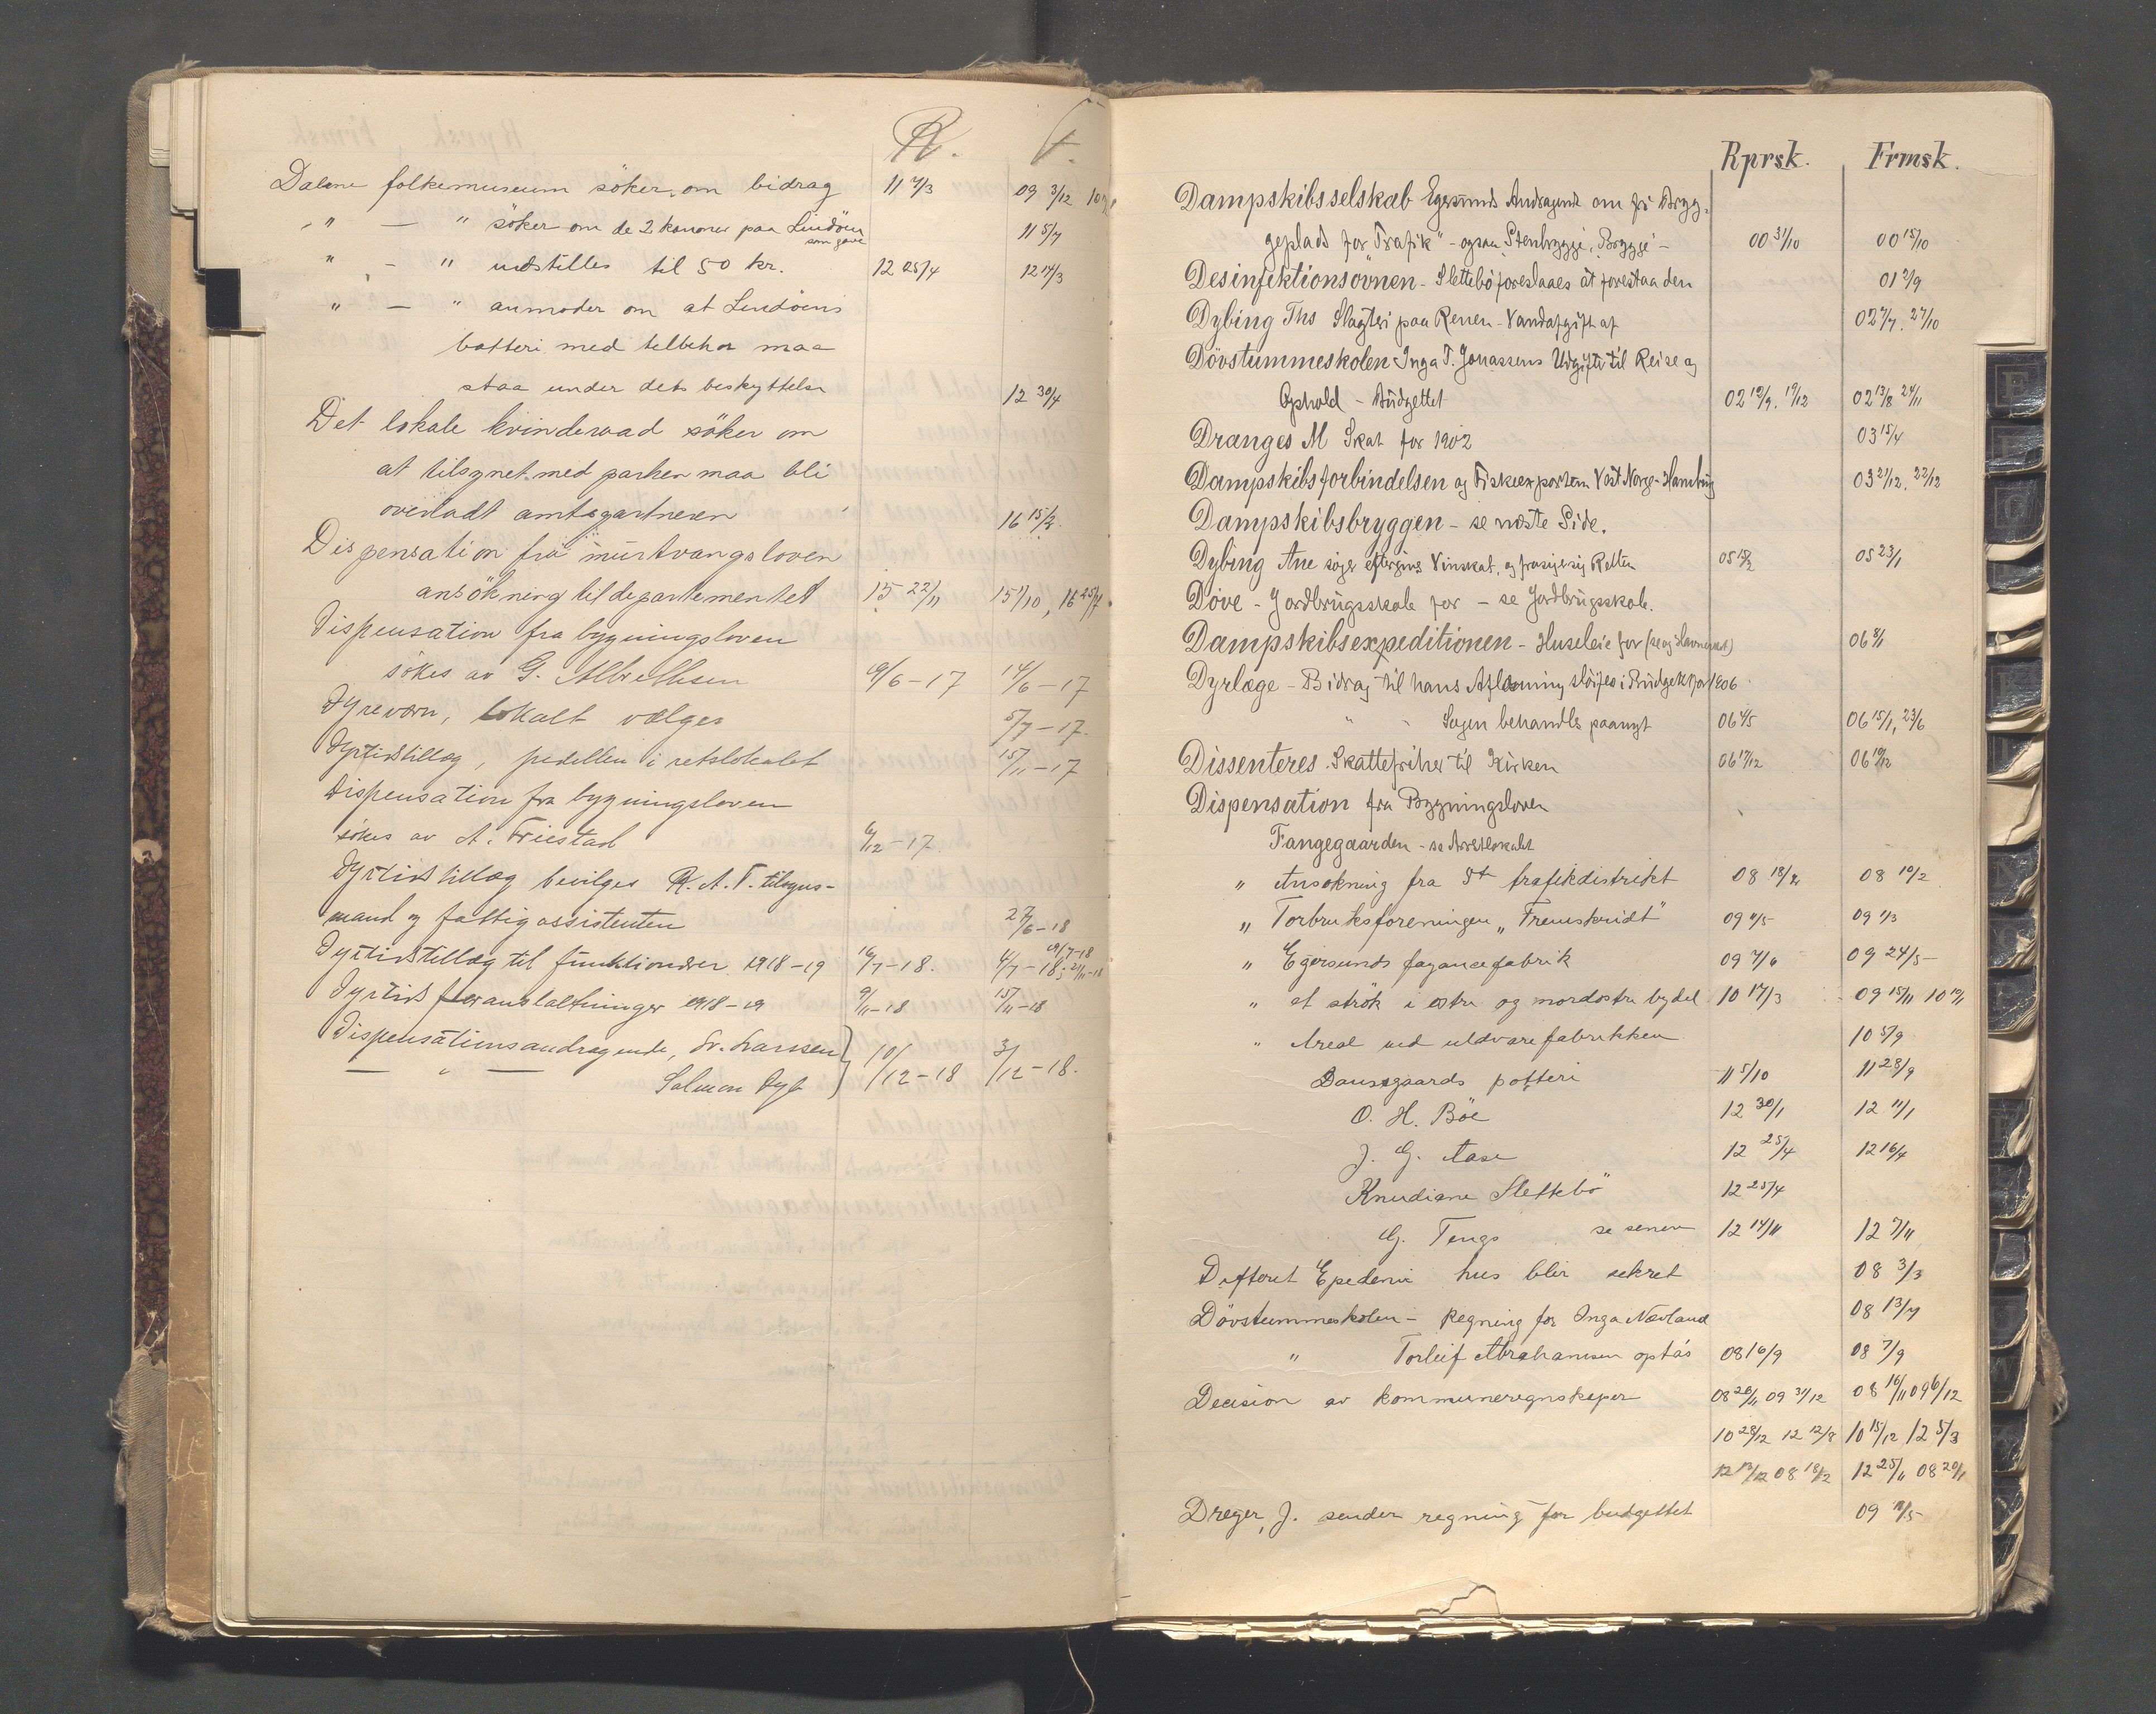 R. F.
Dalene folkemuseum söker om bidrag 11 7/3 09 3/12
" — " söker om de 2 kanoner paa Lindöen 11 5/7
som gave
" — " utstilles til 50 kr. 12 25/4 12 14/3
" — " anmoder om at Lindöens
batteri med tilbehør maa
staa under dets beskyttelse 12 30/4
Det lokale kvinderaad söker om
at tilsynet med parken maa bli
overladt amtsgartneren 16 15/2
Dispensation fra murtvangsloven
ansökning til departementet 15 22/11 15 1/10, 16 25/7
Dispensation fra bygningsloven
sökes av G. Albrethsen 9/6-17 14/6-17
Dyrevern, lokalt vælges 5/7-17.
Dyrtidstillæg, pedellen i retslokalet 15/11-17
Dispensation fra bygningsloven
sökes av A. Friestad 6/12-17.
Dyrtidstillæg bevilges R.A.T. tilsyns-
mand og fattigassistenten 27/6-18
Dyrtidstillæg til funktionærer 1918-19 16/7-18. 4/7-18; 21/11-18
Dyrtidsforanstaltninger 1918-19 9/11-18 15/11-18
Dispensationsandragende, Sv. Larssen 10/12-18 3/12-18.
— " — Salmon Dyb
Rprsk. Frmsk.
Dampskibsselskab Egersunds Andragende om få Bryg-
geplads for "Trafik" - ogsaa Stenbrygge, Brygge - 00 31/10 00 15/10
Desinfektionsovnen - Slettebö foreslaaes at forestaa den 01 2/9
Dybing Ths Slagteri paa Renen - Vandafgift af 02 7/7. 27/10
Dövstummeskolen Inga T. Jonassens Udgifter til Reise og
Ophold - Budgettet 02 12/9. 19/12 02 13/8 24/11
Dranges M Skat for 1902 03 15/4
Dampskibsforbindelsen og Fiskeexporten Vest Norge - Hamburg 03 21/12. 22/12
Dampskibsbryggen - se næste Side.
Dybing Ane søger eftergivet Vinskat, og frasiger sig Retten 05 15/2 05 23/1
Döve - Jordbrugsskole for - se Jordbrugsskole.
Dampskibsexpeditionen - Husleie for (se og Havnevæs) 06 8/1
Dyrlæge - Bidrag til hans Aflønning sløifes i Budgettet for 1906
" " Sagen behandles paanyt 06 1/5 06 15/1, 23/6
Dissenteres Skattefrihet til Kirken 06 17/12 06 10/12
Dispensation fra Bygningsloven
Fangegaarden - se Arrestlokalet
" Ansökning fra 5te trafikdistrikt 08 18/2 08 10/2
" Forbruksforeningen "Fremskridt" 09 4/5 09 1/3
" Egersunds fayancefabrik 09 7/6 09 24/5
" et strök i østre og nordostre bydel 10 17/3 09 15/11 10 10/1
" Areal ved uldvarefabrikken 10 5/9
Dausgaards potteri 11 5/10 11 28/9
O. H. Böe 12 30/1 12 11/1
J. G. Aase 12 25/4 12 16/4
Knudiane Slettebö 12 25/4
G. Tengs se senere 12 14/11 12 7/11
Difterit Epedemi hus blir sikret 08 3/3
Dövstummeskolen - Regning for Inga Nævland 08 13/7
" Torleif Abrahamsen optås 08 16/9 08 7/9
Decision av kommuneregnskaper 08 26/11 09 31/12 08 16/11 09 6/12
10 28/12 12 12/8 10 15/12 12 5/3
12 13/12 08 18/2 12 25/11 08 20/1
Dreyer, J. sender regning for budgettet 09 11/5